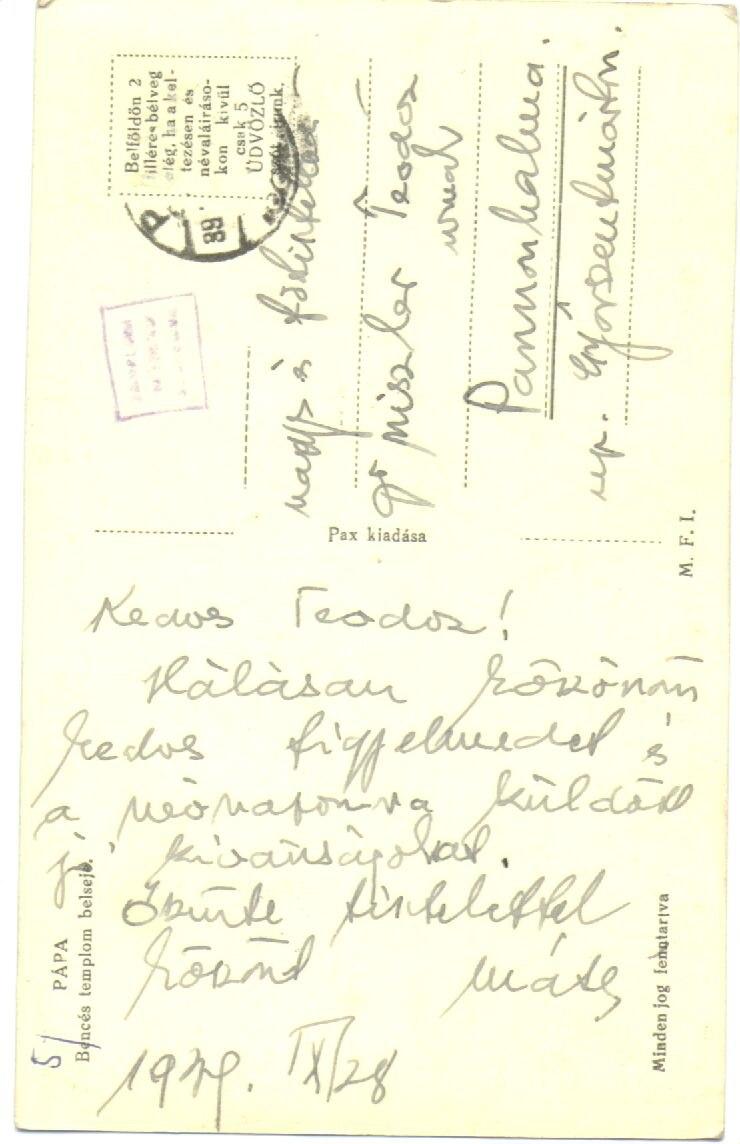 Belföldön 2
filléres bélyeg
elég, ha a kel-
tezésen és
névaláíráso-
kon kívül
csak 5
ÜDVÖZLŐ
P
89.
nagys és
Miszler Teodóz
úrnak
Pannonhalma.
up. Győrszentmárton.
Pax kiadása
M. F. I.
Kedves Teodoz!
Hálásan köszönöm
kedves figyelmedet és
a névnapomra küldött
jó kívánságokat.
Őszinte tisztelettel
köszönt Máté
1949. IX/28
5/
PÁPA
Bencés templom belseje.
Minden jog fenntartva